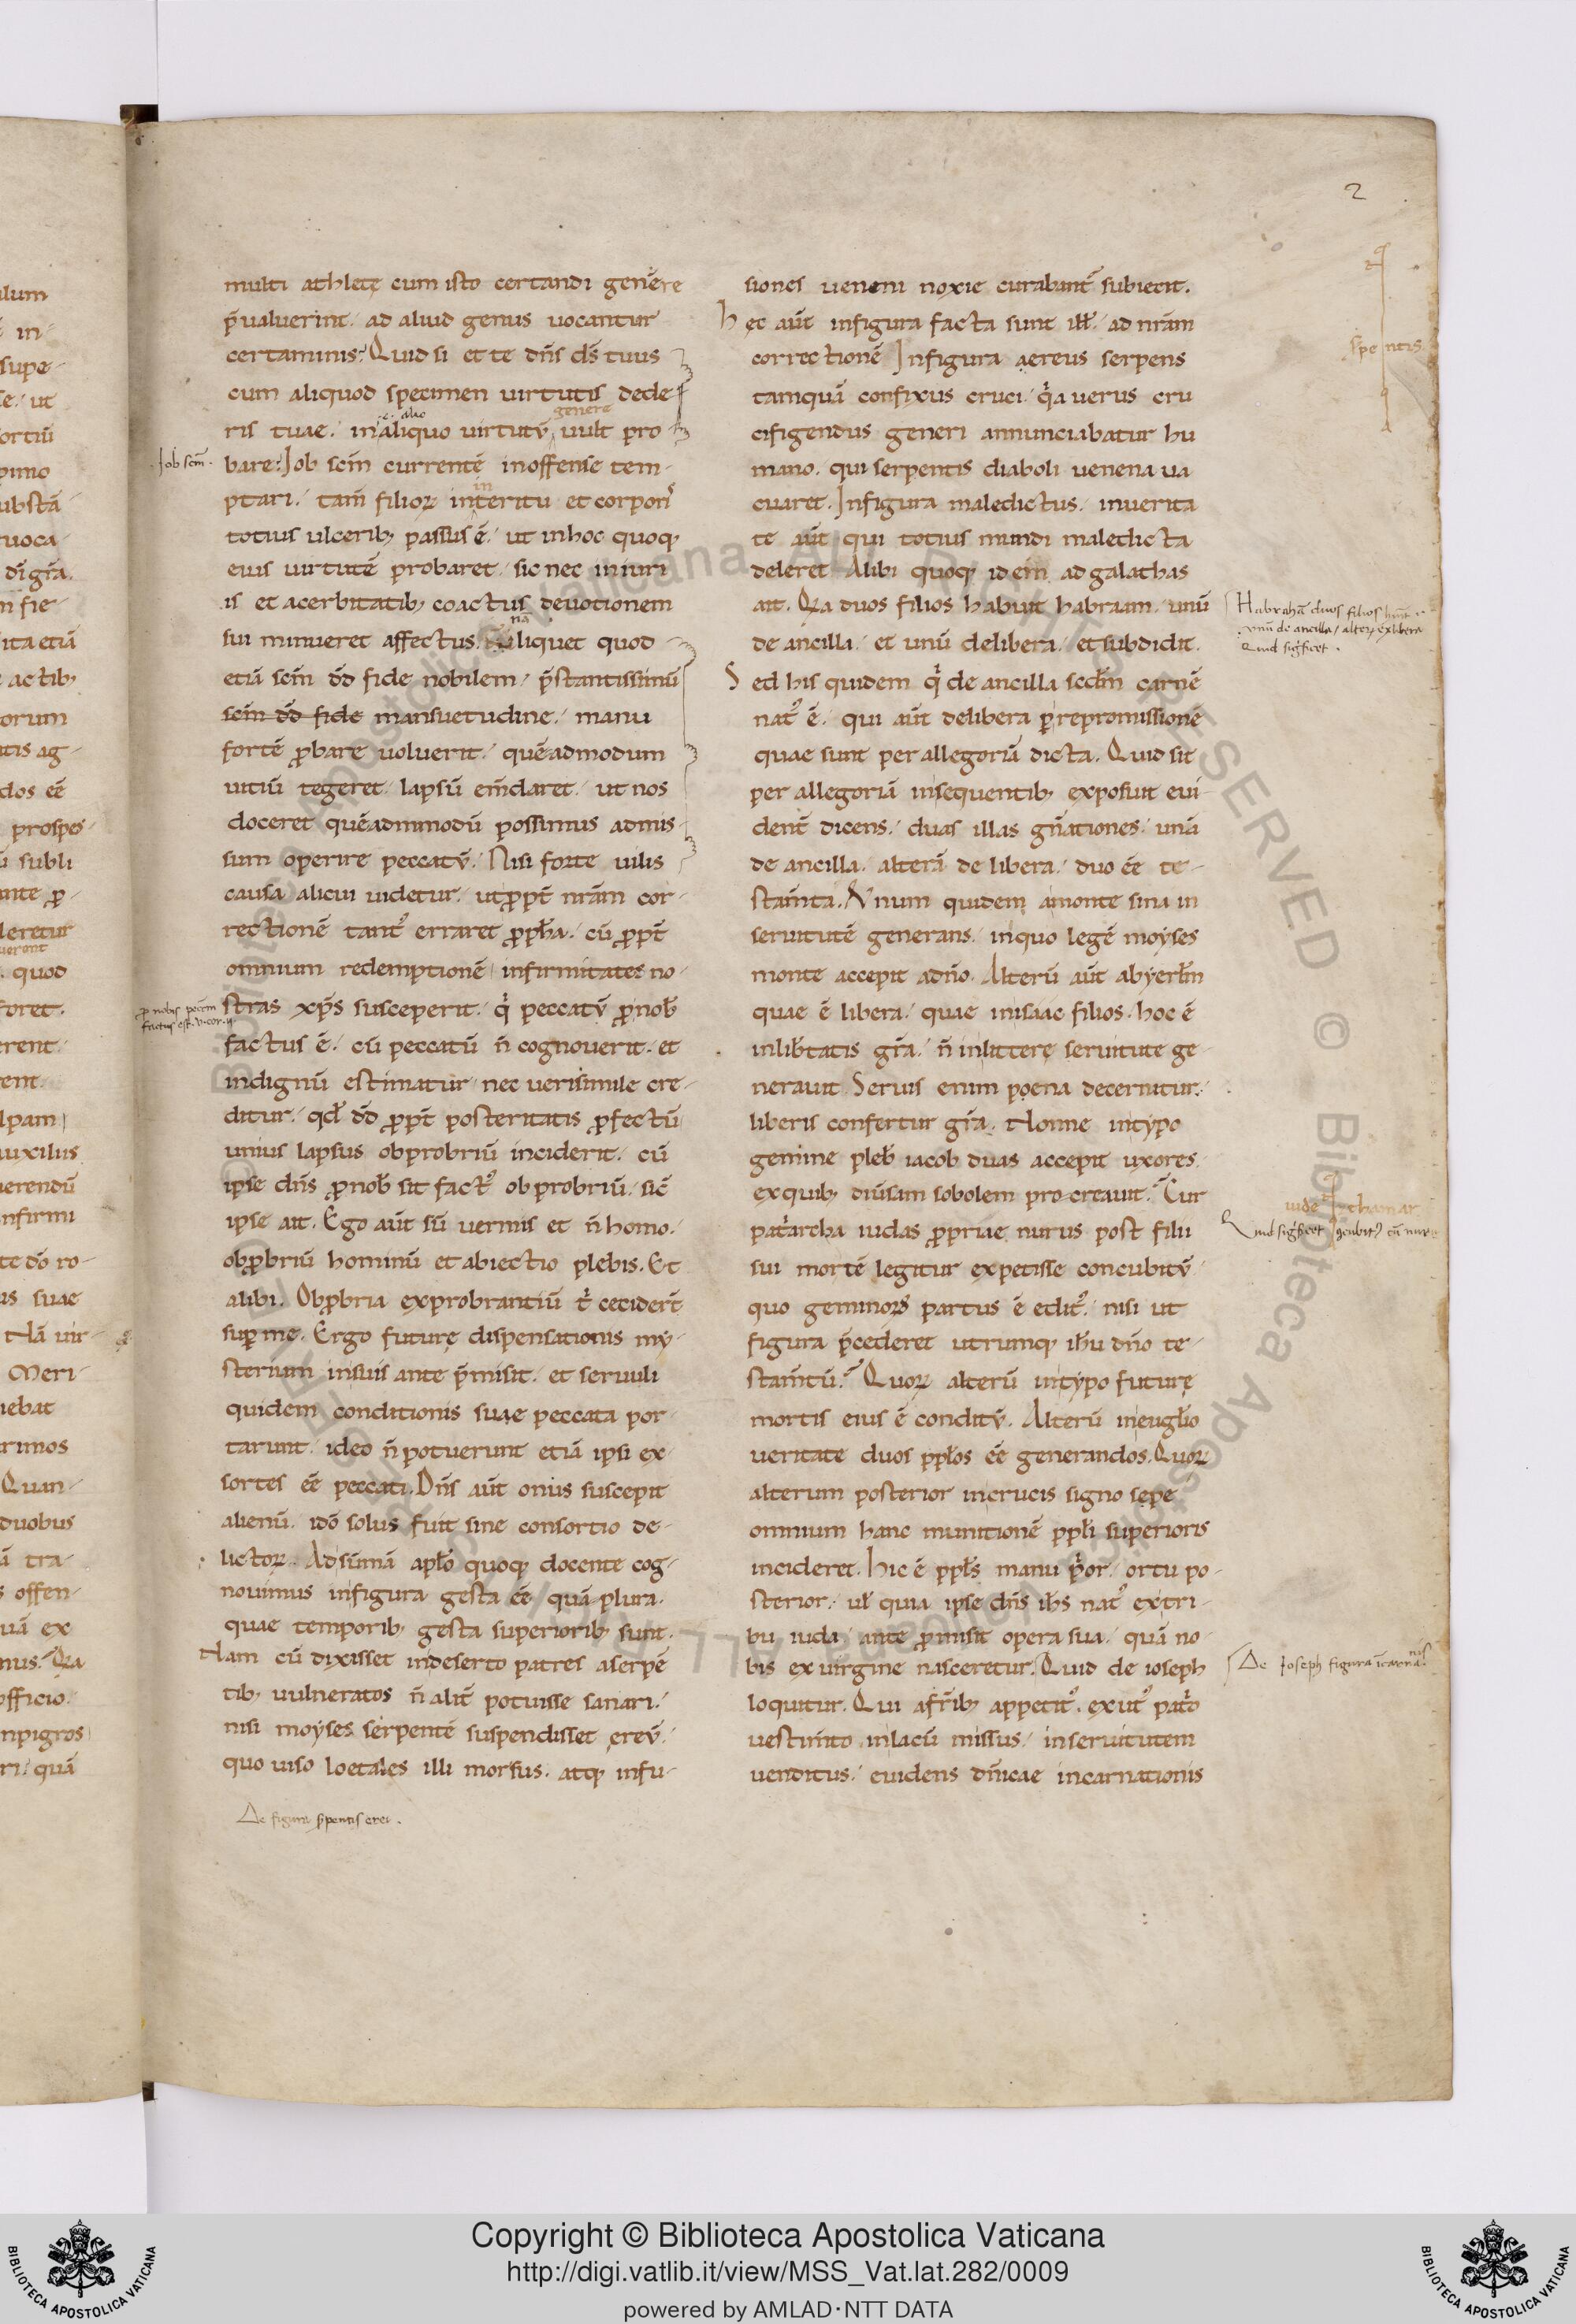 2
multi athletę cum isto certandi genere
p̄valuerint. ad aliud genus vocantur
certaminis? Quid si et te dn̄s ds̄ tuus
cum aliquod specimen virtutis dede
ris tuae. in aliquo virtutū vult pro
alio
genere
bare? Job scm̄ currentē inoffense tem-
Job scm̄.
ptari. tam̄ filioꝝ interitu et corporis
in
totius ulcerib; passus ē. ut inhoc quoq;
eius virtutē probaret. sic nec iniuri
is et acerbitatib; coactus devotionem
sui minueret affectus. liquet quod
na
etiā scm̄ dd̄ fide nobilem. p̄stantissimū
scm̄ dd̄ fide mansuetudine. manu
fortē ꝓbare voluerit. quēadmodum
vitiū tegeret. lapsū em̄daret. ut nos
doceret quēadmmodū possimus admis-
sum operire peccatū. Nisi forte vilis
causa alicui videtur. ut ꝓpt̄ nr̄am cor-
rectionē tant᾽ erraret ꝓph̄a. cū ꝓpt̄
omnium redemptionē infirmitates no-
stras xp̄s susceperit. q̇ peccatū ꝓnob̄
p nobis
factus est
factus ē. cū peccatū n̄ cognoverit. et
indignū estimatur nec verisimile cre-
ditur. qd̄ dd̄ ꝓpt̄ posteritatis ꝓfectū
unius lapsus obprobriū inciderit. cū
ipse dn̄s ꝓnob̄ sit fact᾽ obprobriū. sic̄
ipse ait. Ego aūt sū vermis et n̄ homo.
obꝓbriū hominū et abiectio plebis. Et
alibi. Obꝓbria exprobrantiū t̄ cecider̄t
suꝑ me. Ergo futurę dispensationis my-
sterium insuis ante p̄misit. et servuli
quidem conditionis suae peccata por-
tarunt. ideo n̄ potuerunt etiā ipsi ex-
sortes eē peccati. Dn̄s aūt onus suscepit
alienū. idō solus fuit sine consortio de-
lictoꝝ. Ad sūmā apl̄o quoq; docente cog-
novimus infigura gesta eē quā plura.
quae temporib; gesta superiorib; sunt.
Nam cū dixisset indeserto patres aserpē
tib; vulneratos n̄ alit̄ potuisse sanari.
nisi moyses serpentē suspendisset ereū.
quo viso loetales illi morsus. atq; infu-
De figura sꝑentis erei.
siones veneni noxie curabant̄ subiecit.
Hęc aūt infigura facta sunt ill̄. ad nr̄am
correctionē Infigura aereus serpens
sꝑentis
tamquā confixus cruci. q̇a verus cru
cifigendus generi annunciabatur hu
mano. qui serpentis diaboli venena va
cuaret. Infigura maledictus. inverita
te aūt qui totius mundi maledicta
deleret Alibi quoq; idem ad galathas
ait. Qa duos filios habuit habraam. unū
Habrahā duos filios
unū de ancilla, alterū exlibera
Quid sig̅ficet.
de ancilla. et unū delibera. et subdidit.
Sed his quidem q̇ de ancilla scdm̄ carnē
nat᾽ ē. qui aūt delibera ꝑrepromissionē
quae sunt per allegoriā dicta. Quid sit
per allegoriā insequentib; exposuit evi-
dent̄ dicens. duas illas gn̄ationes. unā
de ancilla. alterā de libera. duo eē te-
stam̄ta. Unum quidem amonte sina in
servitutē generans. inquo legē moyses
monte accepit adn̄o. Alterū aūt abyerl̄m
quae ē libera. quae inisaac filios. hoc ē
inlib̄tatis gr̄a. n̄ inlitterę servitute ge-
neravit Servis enim poena decernitur.
liberis confertur gr̄a. Nonne intypo
gemine pleb̄ iacob duas accepit uxores.
exquib; diūsam sobolem procreavit. Cur
vide thamar
pat̄archa iudas ꝓpriae nurus post filii
Quid sig̅ficet ꝯcubit᾽ cū nuru
sui mortē legitur expetisse concubitū.
quo geminor᾽ partus ē edit᾽. nisi ut
figura p̄cederet utrumq; ihu dn̄o te-
stam̄tū? Quoꝝ alterū intypo futurę
mortis eius ē conditū. Alterū ineugl̄io
veritate duos ppl̄os eē generandos. Quoꝝ
alterum posterior incrucis signo sępe
omnium hanc munitionē ppl̄i superioris
incideret. Hic ē ppl̄s manu p̄or. ortu po-
sterior. ul̄ quia ipse dn̄s ih̄s nat᾽ extri-
bu iuda. ante ꝓmisit opera sua. quā no-
bis ex virgine nasceretur. Quid de ioseph
De Joseph figura īcarna
loquitur. Qui afr̄ib; appetit᾽. exut᾽ pat̄o
vestim̄to inlacū missus. inservitutem
venditus. evidens dn̄icae incarnationis
Copyright © Biblioteca Apostolica Vaticana
http://digi.vatlib.it/view/MSS_Vat.lat.282/0009
powered by AMLAD·NTT DATA
BIBLIOTECA APOSTOLICA VATICANA
BIBLIOTECA APOSTOLICA VATICANA